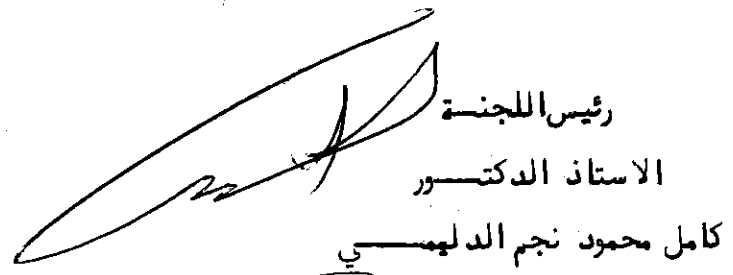 رئيس اللجنــة
الاستاذ الدكتــــور
كامل محمود نجم الدليمــــي